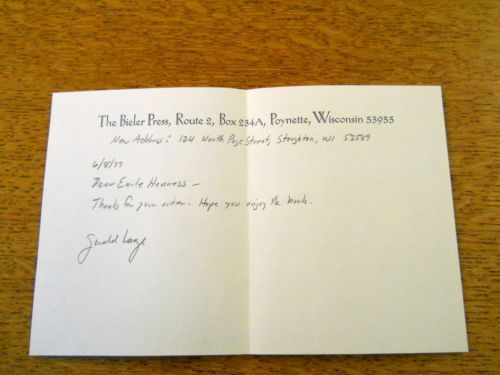 The Bieler Press, Route 2, Box 234A, Poynette, Wisconsin 53955
New Address: 124 North Page Street, Stoughton, WI 53589
6/8/77
Dear Earle Henness –
Thanks for your order. Hope you enjoy the book.
Gerald Lange